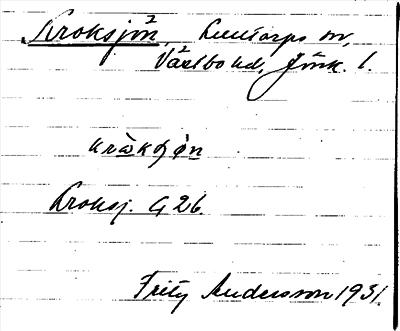 Kroksjön, Luttarps sn,
Västbo hd, Jönk. l.
kròksjøn
Kroksj. G 26.
Fritz Andersson 1931.